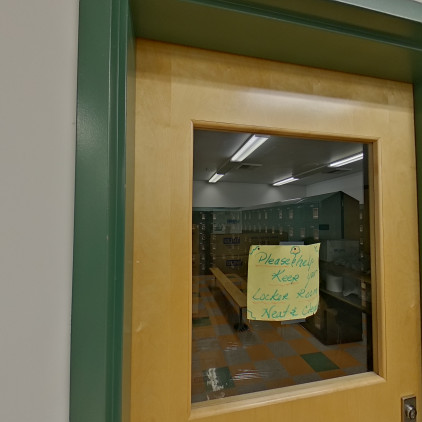 Please help
Keep
Locker Room
Neat &